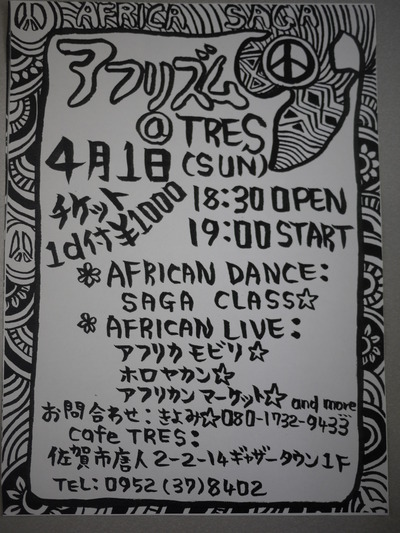 AFRICA SAGA
アフリズム
@ TRES
4月1日(SUN)
チケット
1d付¥1000
18:30 OPEN
19:00 START
❋AFRICAN DANCE:
SAGA CLASS☆
❋AFRICAN LIVE:
アフリカモビリ☆
ホロヤカン☆
アフリカンマーケット☆ and more
お問合わせ:きよみ☆080-1732-9433
Cafe TRES:
佐賀市唐人2-2-14ギャザータウン1F
TEL: 0952(37)8402